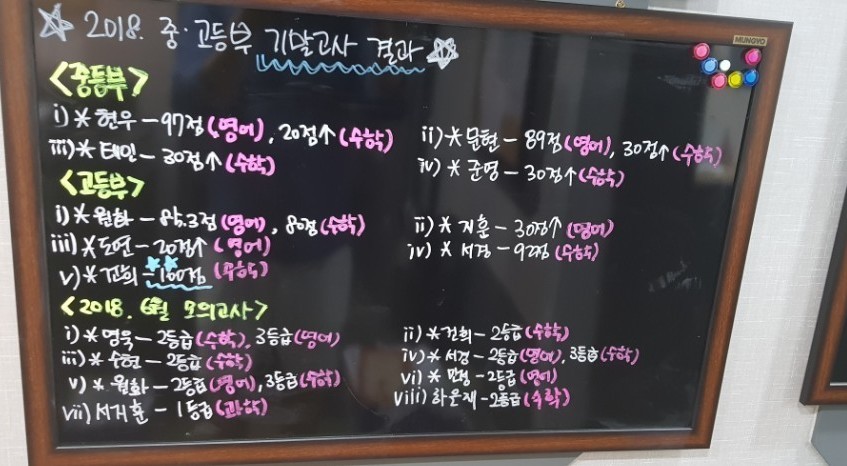 ☆ 2018. 중·고등부 기말고사 결과 ☆
MUNGYO
<중등부>
i) * 현우 - 97점 (영어), 20점↑ (수학)
ii) * 문현 - 89점 (영어), 30점↑ (수학)
iii) * 태민 - 30점↑ (수학)
iv) * 준영 - 30점↑ (수학)
<고등부>
i) * 원화 - 85.3점 (영어), 80점 (수학)
ii) * 지훈 - 30점↑ (영어)
iii) * 도연 - 20점↑ (영어)
iv) * 서경 - 92점 (수학)
v) * 건희 - 100점 (수학)
<2018. 6월 모의고사>
i) * 영욱 - 2등급 (수학), 3등급 (영어)
ii) * 건희 - 2등급 (수학)
iii) * 수현 - 2등급 (수학)
iv) * 서경 - 2등급 (영어), 3등급 (수학)
v) * 원화 - 2등급 (영어), 3등급 (수학)
vi) * 민성 - 2등급 (영어)
vii) 서거훈 - 1등급 (과학)
viii) 하은재 - 2등급 (수학)